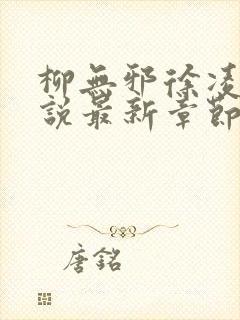 柳無邪徐凌
說最新章節
唐銘